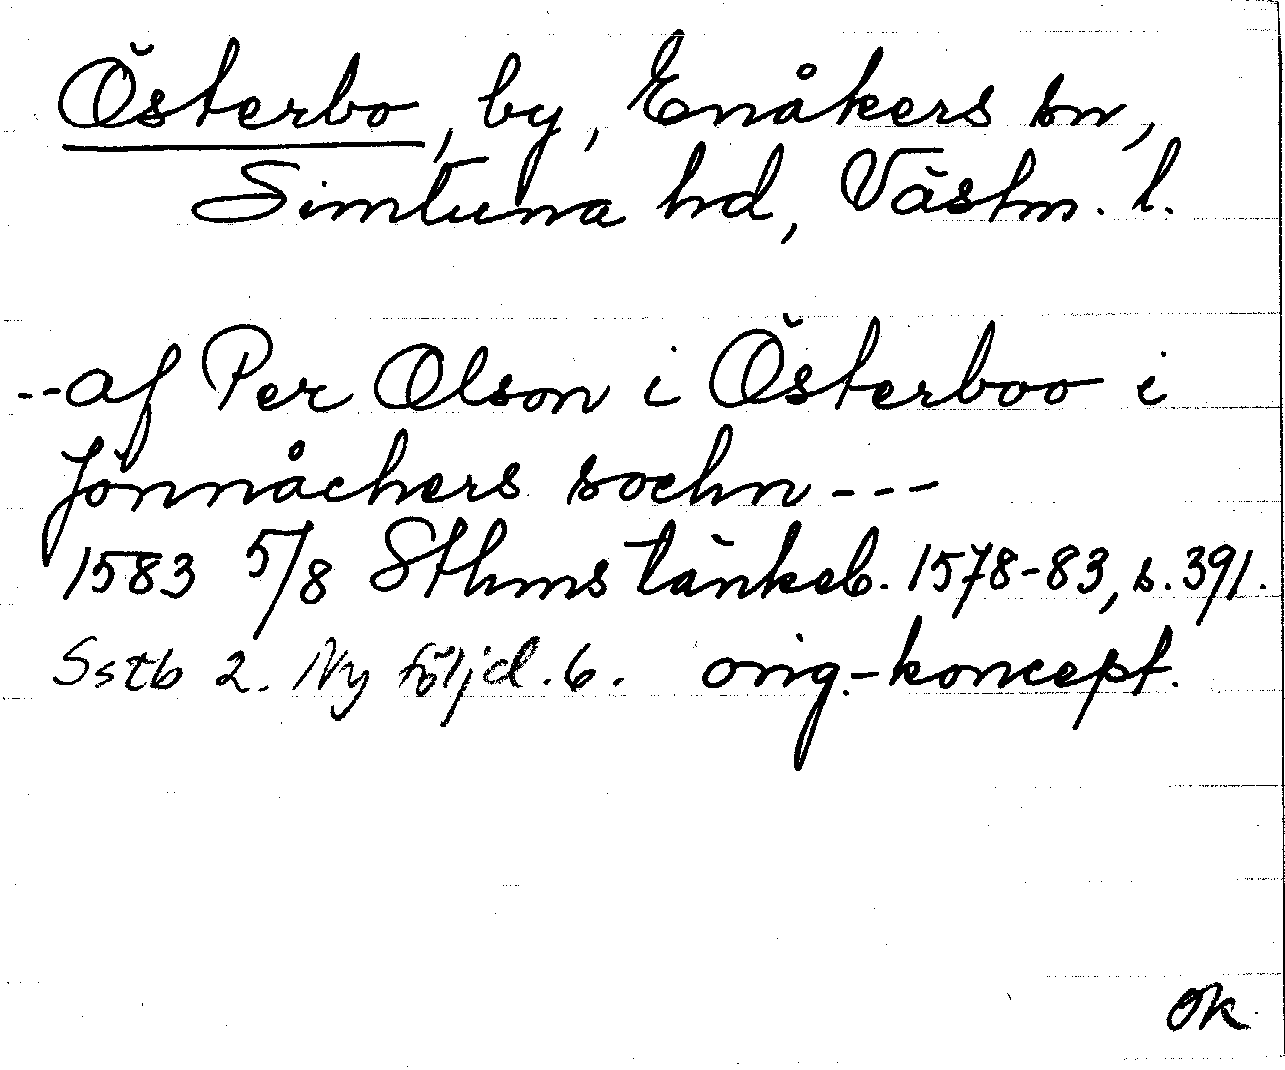 Österbo, by, Enåkers sn,
Simtuna hd, Västm. l.
--af Per Olson i Österboo i
Jönnåchers sochn---
1583 5/8 Sthms tänkeb. 1578-83, s. 391.
Sstb 2. Ny följd. 6. orig.-koncept.
OK